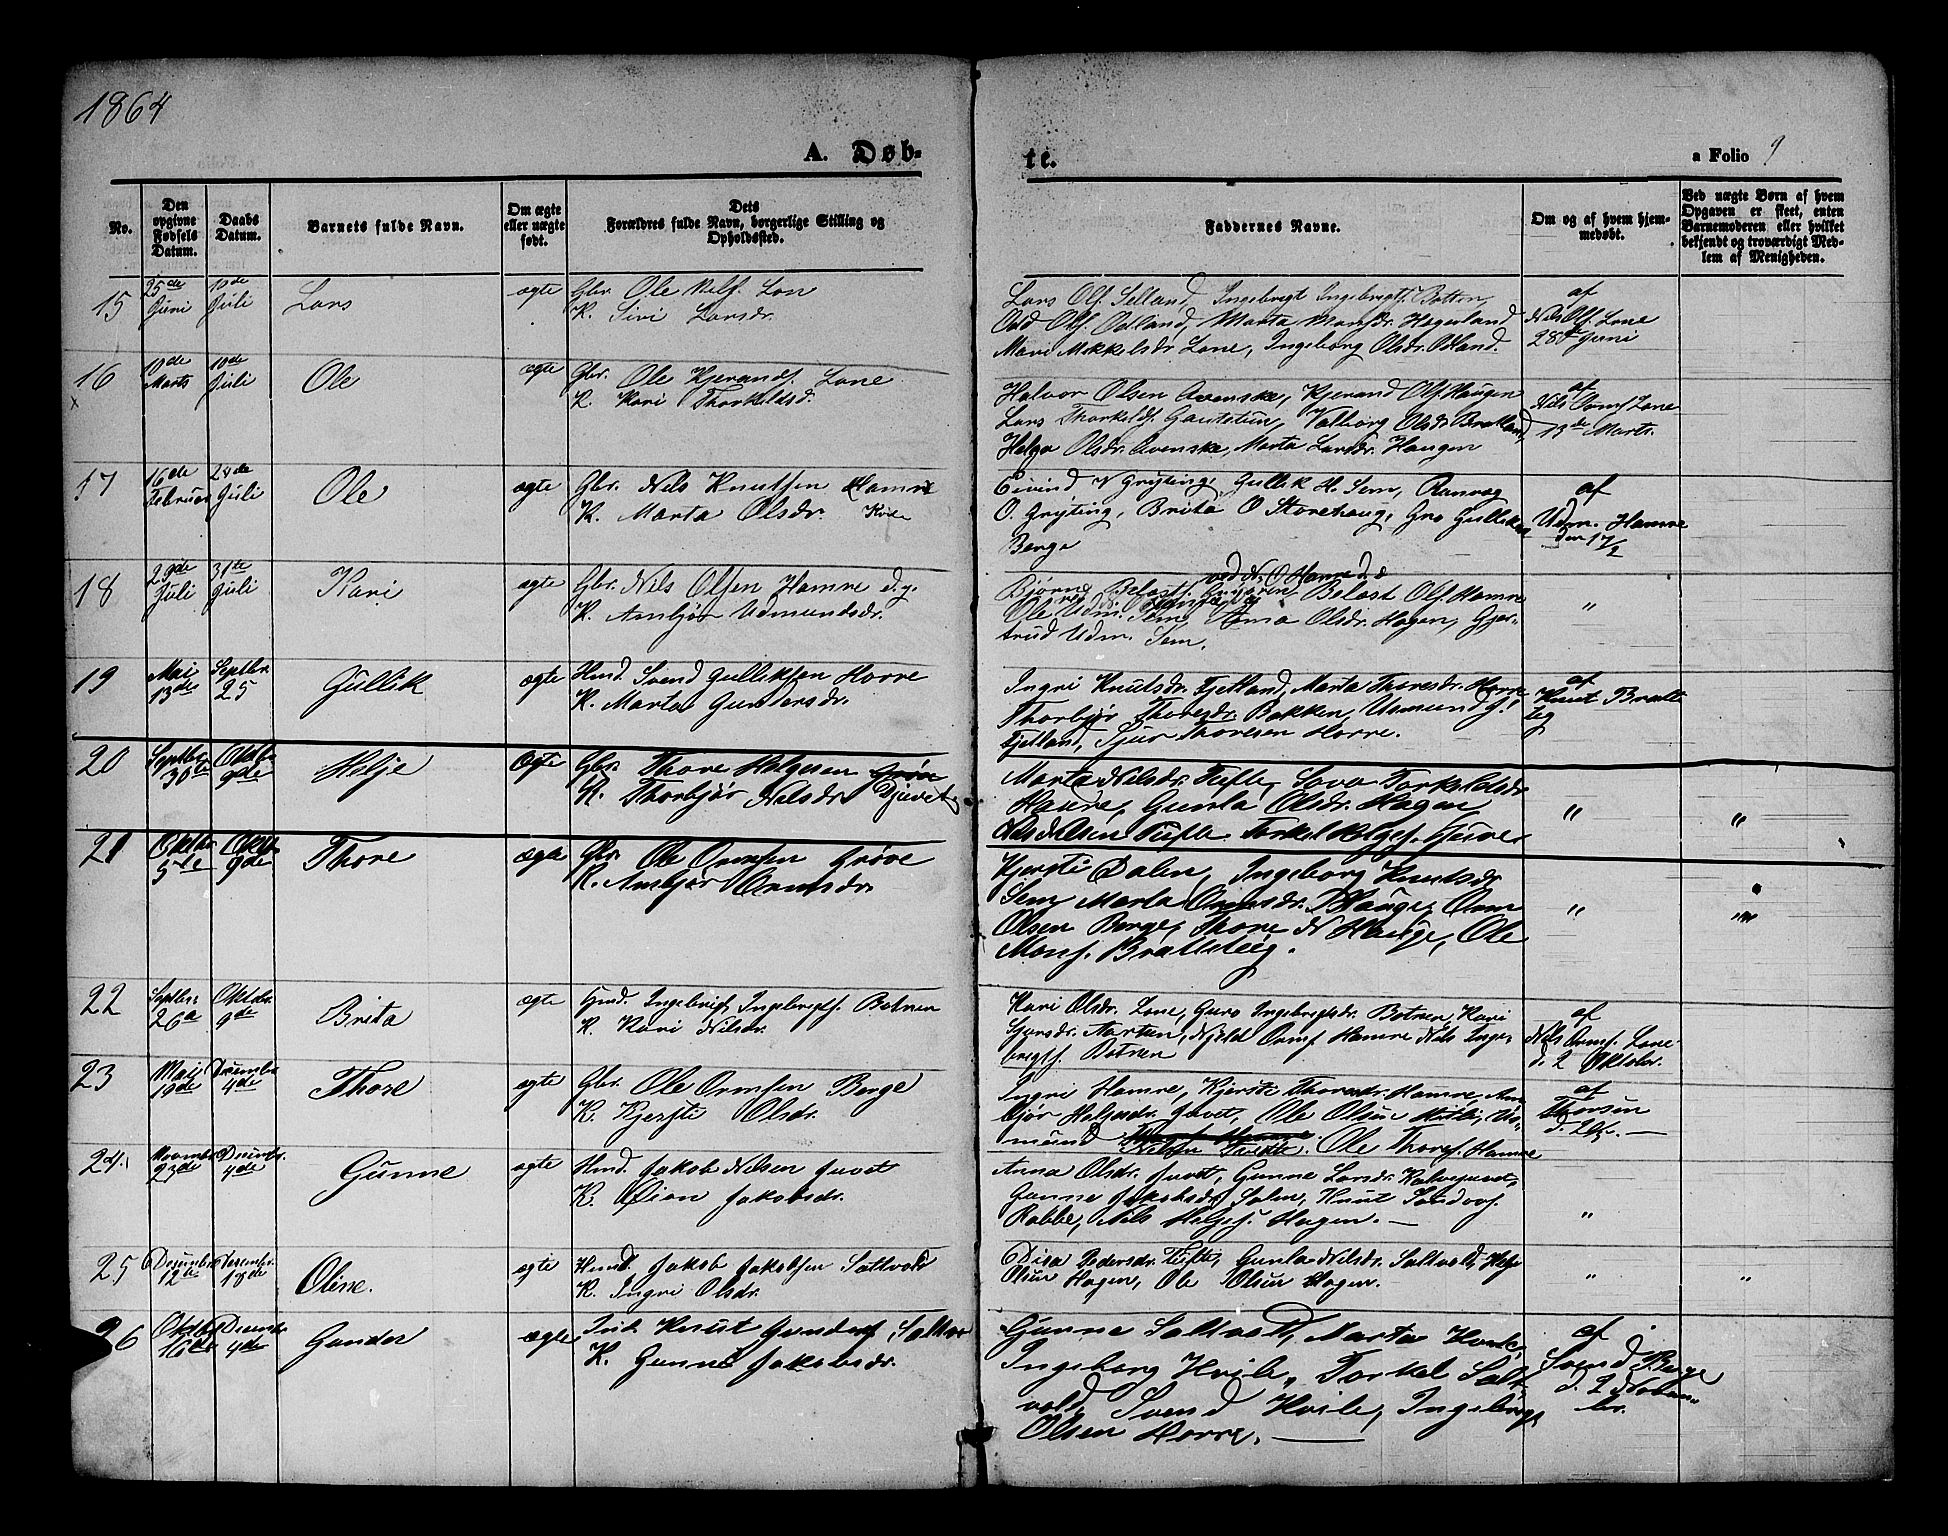 1864
A. Døb-
te.
a Folio 9
No.
Den opgivne Fødsels Datum.
Daabs Datum.
Barnets fulde Navn.
Om ægte eller uægte født.
Dets Forældres fulde Navn, borgerlige Stilling og Opholdssted.
Faddernes Navne.
Om og af hvem hjemmedøbt.
Ved uægte Børn af hvem Opgaven er skeet, enten Barnemoderen eller hvilket bekjendt og troværdigt Medlem af Menigheden.
15 25de Juni 10de Juli Lars ægte Gbr. Ole Lone
K. Sivi Larsdr.
Lars Olss. Selland, Ingebrigt Ingebrigts. Botten,
Odd Ols. Odland, Marta Monsdr. Hageland
Mari Mikkelsdr. Lone, Ingeborg Olsdr. Odland.
af Nils Ols. Lone 28de Juni
16 10de Marts 10de Juli Ole ægte Gbr. Ole Kjerands. Lone
K. Kari Thorkeldsd.
Halvor Olsen Svenske, Kjerand Ols. Haugen
Lars Thorkelds. Gautetun, Valborg Olsdr. Brekland,
Helga Olsdr. Svenske, Marta Larsdr. Haugen
af Nils Orms. Lone 13de Marts.
17 16de Februar 24de Juli Ole ægte Gbr. Nils Knutsen Hamre
K. Marta Olsdr.
Eivind N Gryting, Gullik H. Sem, Ranvog
O. Gryting, Brita O Storehaug, Gro Gulliksd
Berge
af Udm. Hamre den 17/2
18 29de Juli 31te Juli Kari ægte Gbr. Nils Olsen Hamre d.y.
K. Ambjør Udmundsdr.
ved N. O Hamre d. æ
Bjørne Belest. Belest Ols. Hamre
Ole Udm. Sem, Anna Olsdr. Hagen, Gjer-
trud Udm. Sem.
"
19 Mai 13de Septbr. 25 Gullik ægte Hmd. Svend Gulliksen Horre
K. Marta Gundersdr.
Ingri Knutsdr. Fjetland, Marta Thoresdr. Horre
Thorbjør Thoresdr. Bakken, Usmund G.
Fjetland, Sjur Thoresen Horre.
af Knut Bratte
teg
20 Septbr. 30te Oktbr. 9de Helje ægte Gbr. Thore Helgesen Grøn
K. Thorbjør Nilsdr. Djuvet
Marta Nilsdr. Tufte, Sova Torkeldsdr
Haure, Gunla Olsdr. Hagen
Nils Nilsen Tufte Torkel Helges. Hjuve
" "
21 Oktbr. 5te Oktbr. 9de Thore ægte Gbr. Ole Ormsen Grøve
K. Ambjør Ormsdr.
Kjersti Dalen, Ingeborg Knutsdr
Sem Marta Ormsdr. Hauge, Orm
Olsen Berge, Thore N Hauge, Ole
Mons. Brattsteig.
" "
22 Septbr. 26de Oktbr. 9de Brita ægte Hmd. Ingebrigt Ingebrigts. Botnen
K. Kari Nilsdr.
Kari Olsdr. Lone, Guro Ingebrigtsdr. Botnen, Kari
Sjursdr. Aartun, Njeld Orms Hamre Nils Inge-
brigts. Botnen
af Nils Orms. Lone d. 2 Oktobr.
23 Mai 19de Decembr 4de Thore ægte Gbr. Ole Ormsen Berge
K. Kjersti Olsdr.
Ingri Hamre, Kjersti Thoresdr. Hamre, Am-
bjør Helgesdr. Juvet, Ole Olsen Us-
mund Nilsen Tveite. Ole Thores. Hamre
af Thorsen
24. Novembr 23de Decembr. 4de Gunne ægte Hmd. Jakob Nilsen Juvet
K. Eien Jakobsdr.
Anna Olsdr. Juvet, Gunne Larsdr. Kalvejuvet,
Gunne Jakobsdr. Dalen, Knut Sandvos.
Rabbe, Nils Helges. Hagen. —
"
25 Decembr 12te Decembr. 18de Oline. ægte Hmd. Jakob Jakobsen Saltvold
K. Ingri Olsdr.
Disa Pedersdr. Tufte, Gunla Nilsdr. Saltvold, Helge
Olsen Hagen, Ole Olsen Hagen.
" "
26 Oktbr 16de Decembr 4de Gunder ægte Ind. Knut Gunders. Saltvo
K. Gunne Jakobsdr.
Gunne Saltvold, Marta Horre,
Ingeborg Hvile, Torkel Salt
vold, Svend Hvile, Ingebrigt
Olsen Horre. —
af Svend Berge d. 2 Novem-
br.